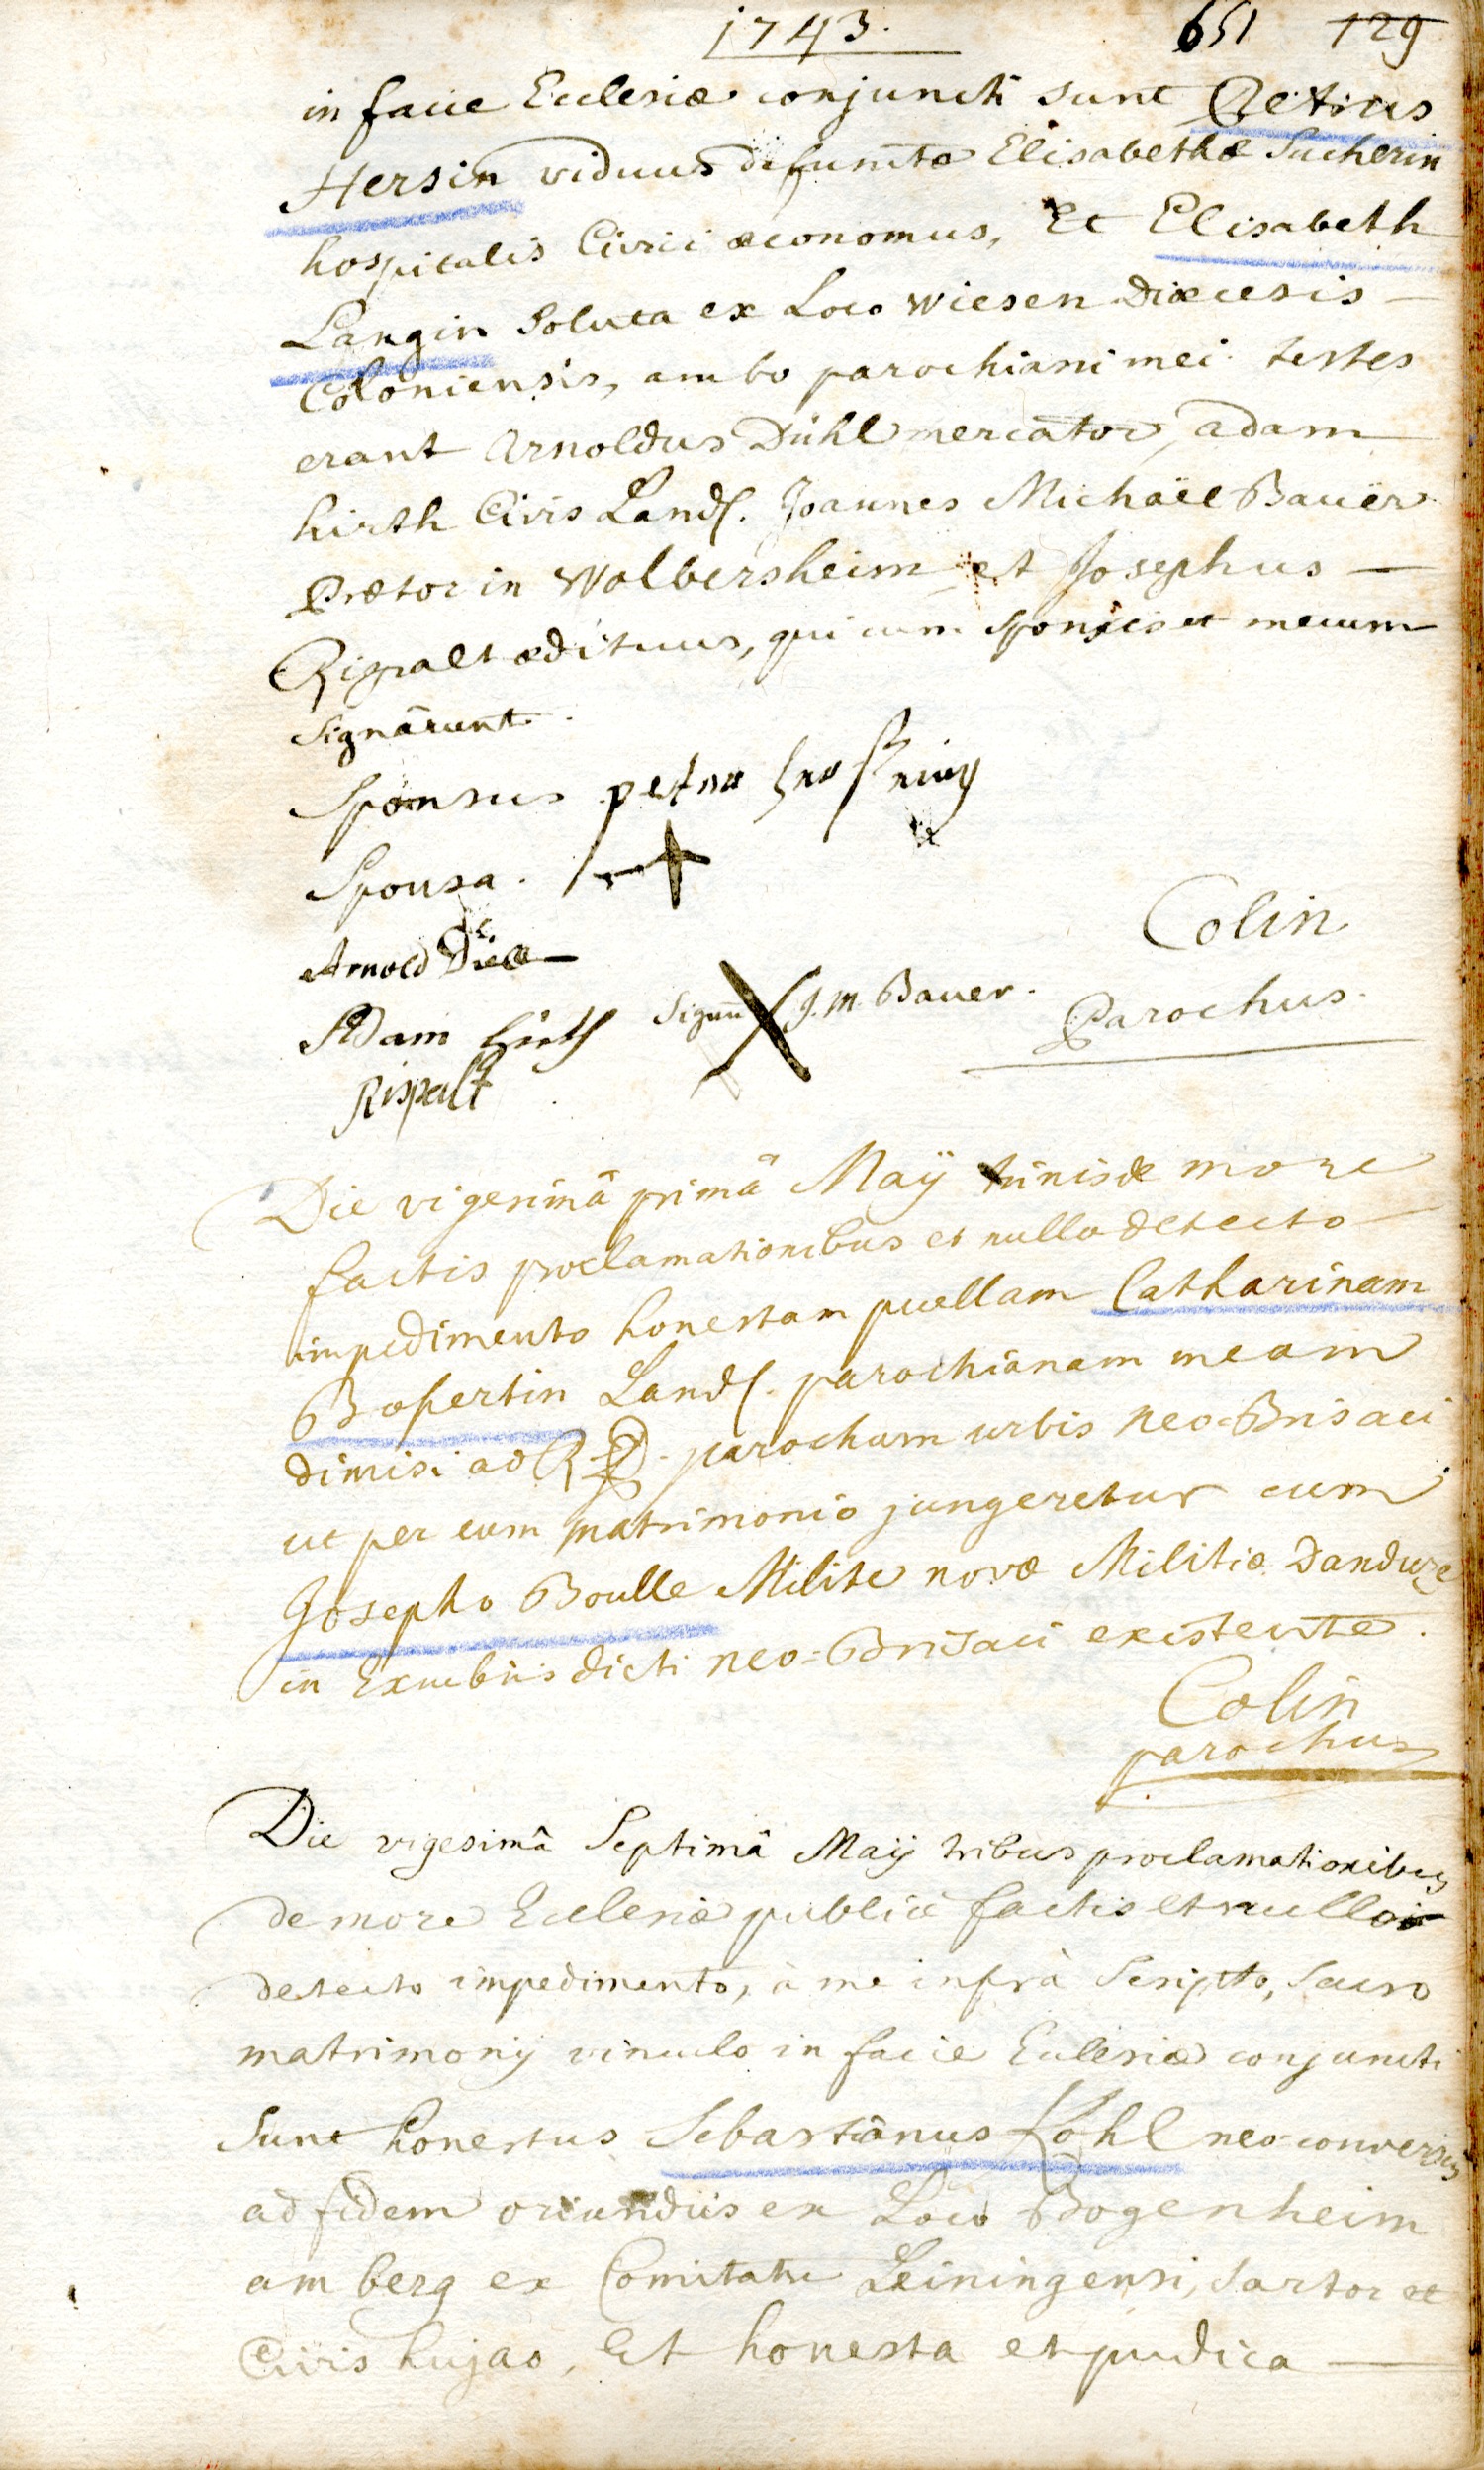 1743.
651 129
in facie Ecclesiæ conjuncti sunt Petrus
Hersin viduus defunctæ Elisabethæ Sucherin
hospitalis Civici œconomus, Et Elisabeth
Langin Soluta ex Loco Wiesen Diœcesis
Coloniensis, ambo parochiani mei. testes
erant Arnoldus Dühl mercator, adam
hirth Civis Land. Joannes Michaël Bauër
Prætor in Wolbersheim et Josephus
Rispalt ædituus, qui cum sponsis et mecum
signârunt.
Sponsus peter
Sponsa.
Arnold
Colin
Adam Hirth Signum J. M. Bauer.
Parochus.
Rispalt
Die vigesimâ primâ Maÿ trinis de more
factis proclamationibus et nullo detecto
impedimento honestam puellam Catharinam
Bopertin Land. parochianam meam
dimisi ad R D. parochum urbis neo-Brisaci
ut per eum matrimonio jungeretur cum
Josepho Boulle Milite novæ Militiæ Danduze
in Excubiis dicti neo=Brisaci existente.
Colin
parochus
Die vigesimâ Septimâ Maÿ tribus proclamationibus
de more Ecclesiæ publicè factis et nullo
detecto impedimento, à me infrà Scripto, Sacro
matrimonÿ vinculo in facie Ecclesiæ conjuncti
Sunt honestus Sebastiânus Kohl neo-conversus
ad fidem oriundus ex Loco Bogenheim
am berg ex Comitatu Leiningensi, Sartor et
Civis hujas, Et honesta et pudica